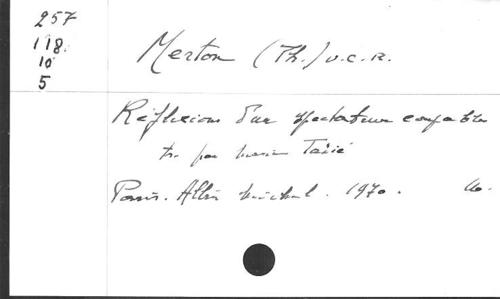 257
118.
10
5
Merton (Th.) o.c.R.
Réflexions d'un spectateur coupable
tr. par Marie Tadié
Paris. Albin Michel. 1970.